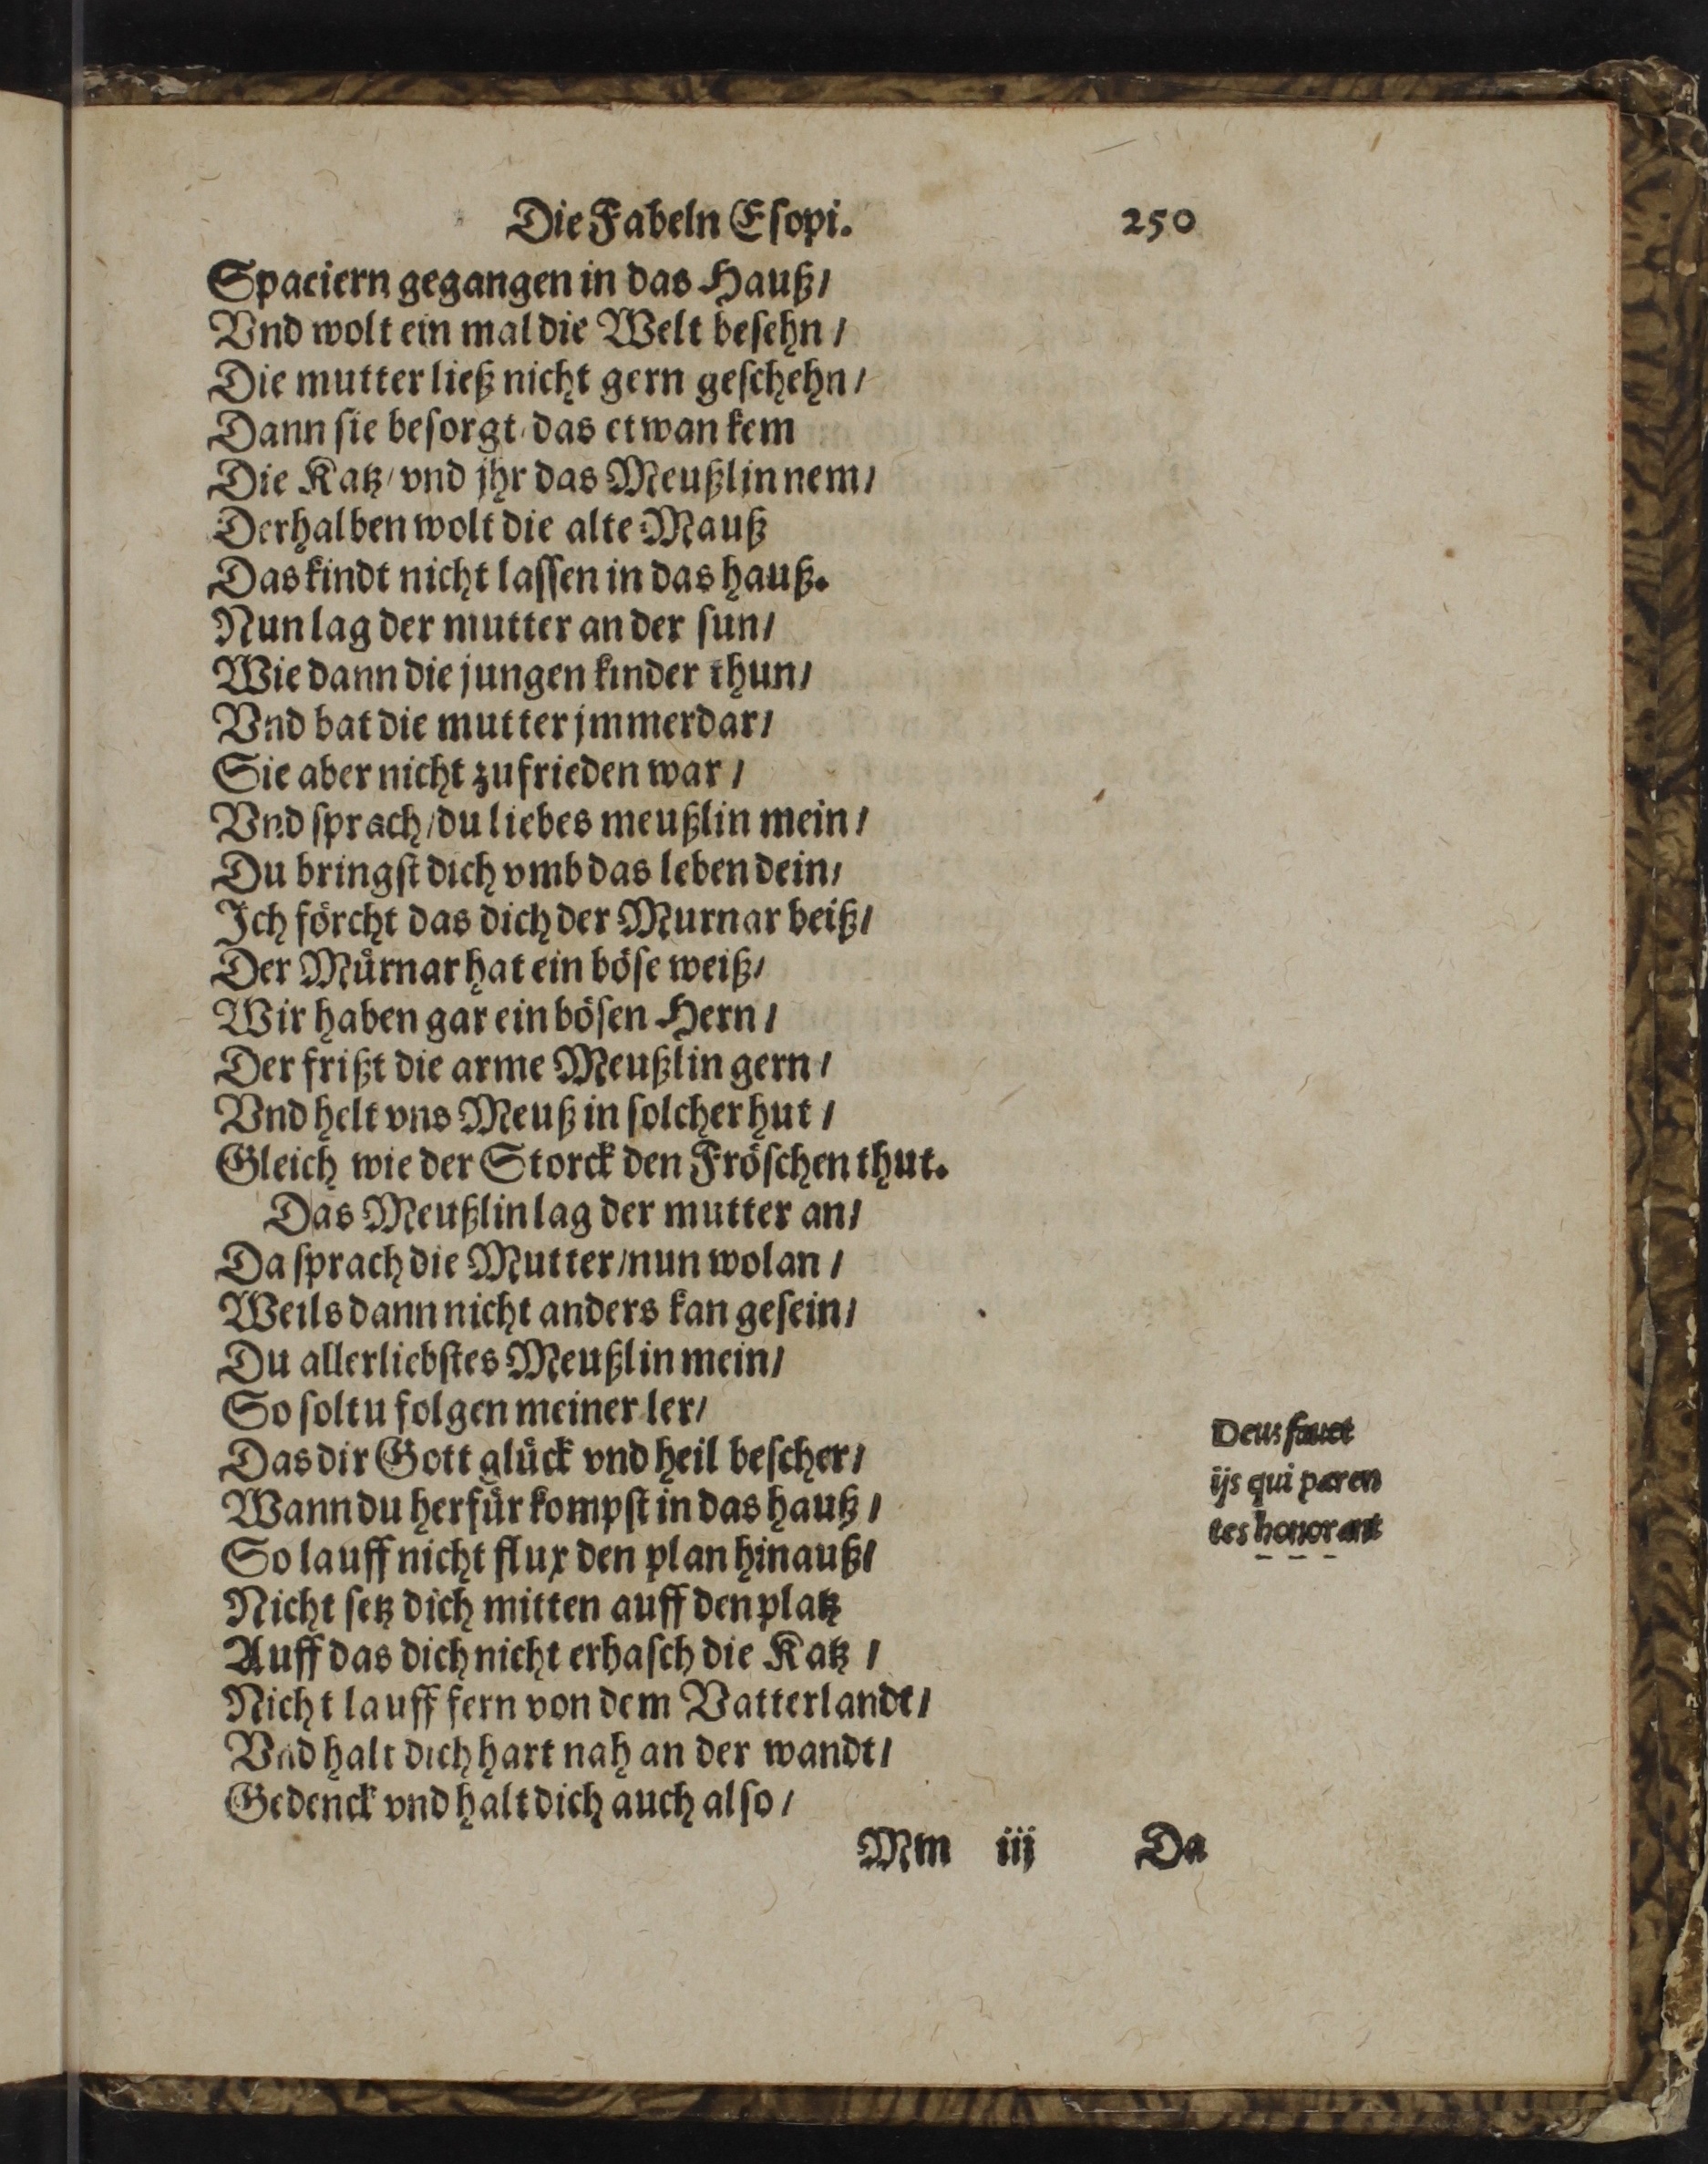 Die Fabeln Eſopi. 250
Spaciern gegangen in das Hauß/
Vnd wolt ein mal die Welt beſehn/
Die mutter ließ nicht gern geſchehn/
Dann ſie beſorgt/ das etwan kem
Die Katz/ vnd jhr das Meußlin nem/
Derhalben wolt die alte Mauß
Das kindt nicht laſſen in das hauß.
Nun lag der mutter an der ſun/
Wie dann die jungen kinder thun/
Vnd bat die mutter jmmerdar/
Sie aber nicht zufrieden war/
Vnd ſprach/ du liebes meußlin mein/
Du bringſt dich vmb das leben dein/
Ich förcht das dich der Murnar beiß/
Der Mürnar hat ein böſe weiß/
Wir haben gar ein böſen Hern/
Der frißt die arme Meußlin gern/
Vnd helt vns Meuß in ſolcher hut/
Gleich wie der Storck den Fröſchen thut.
Das Meußlin lag der mutter an/
Da ſprach die Mutter/ nun wolan/
Weils dann nicht anders kan geſein/
Du allerliebſtes Meußlin mein/
So ſoltu folgen meiner ler/
Das dir Gott glück vnd heil beſcher/
Wann du herfür kompſt in das hauß/
So lauff nicht flux den plan hinauß/
Nicht ſetz dich mitten auff den platz
Auff das dich nicht erhaſch die Katz/
Nicht lauff fern von dem Vatterlandt/
Vnd halt dich hart nah an der wandt/
Gedenck vnd halt dich auch alſo/
Deus fauet
ijs qui paren
tes honorant
Mm iij Da